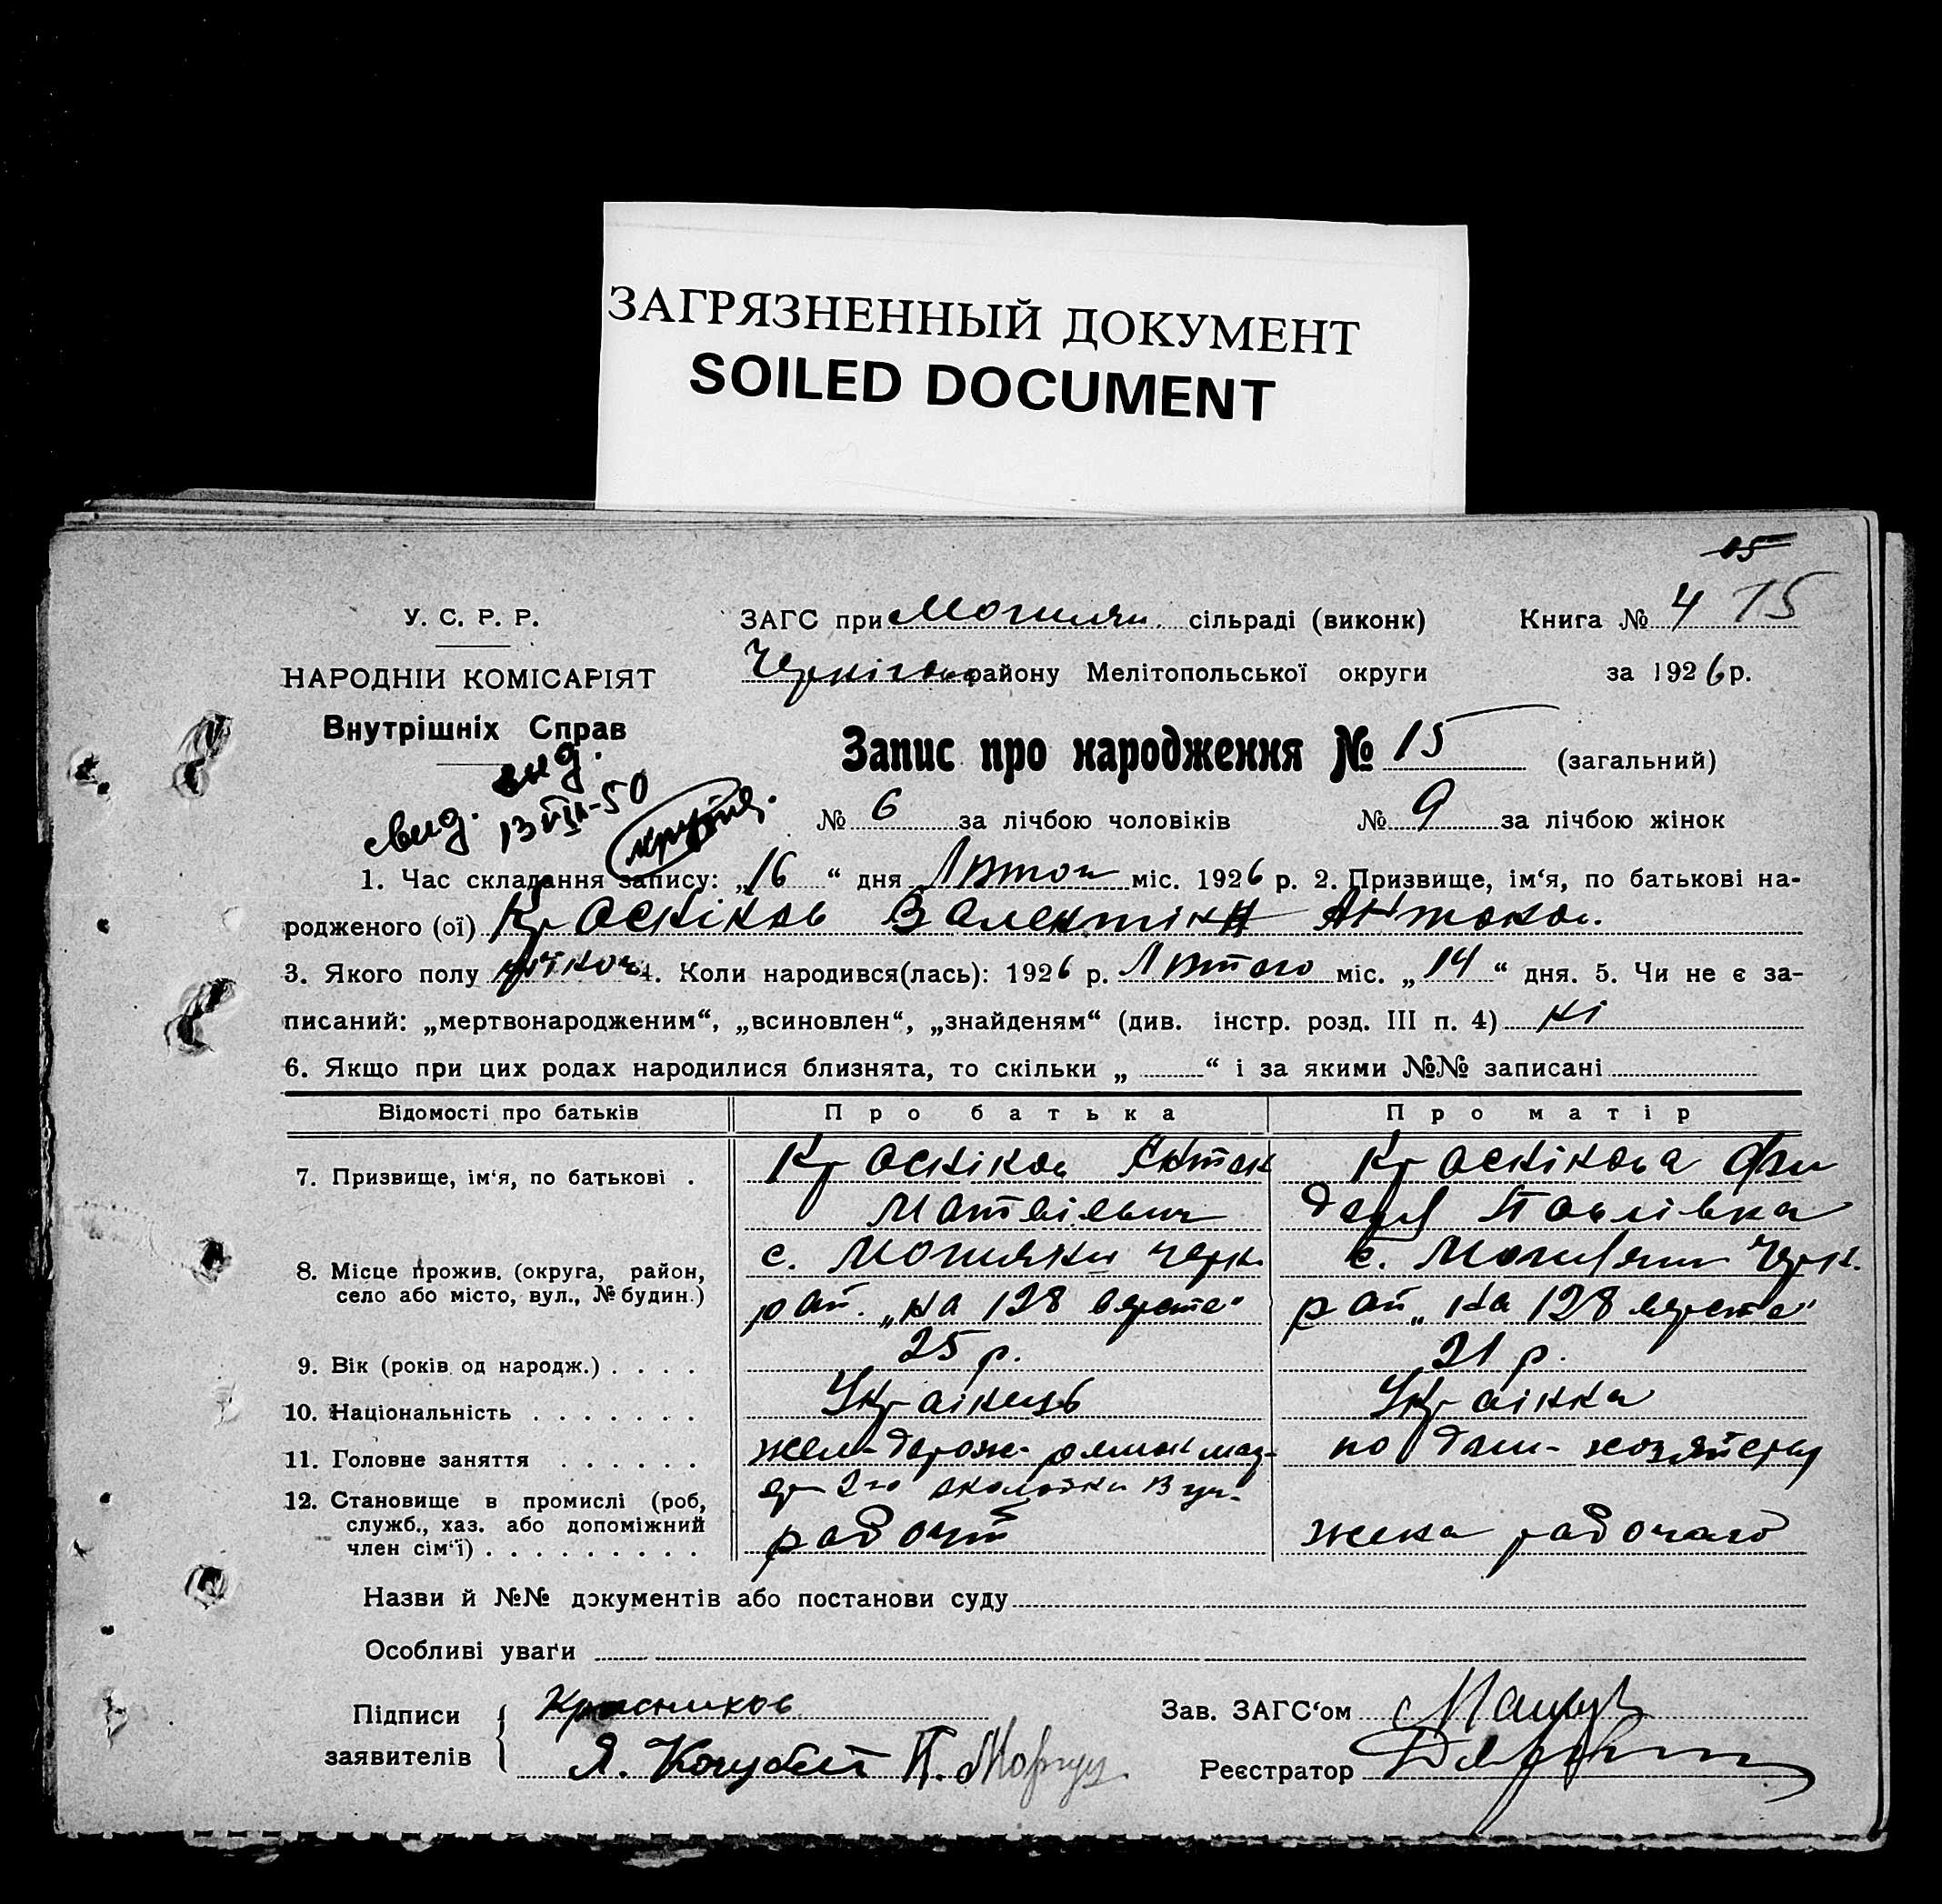 ЗАГРЯЗНЕННЫЙ ДОКУМЕНТ
SOILED DOCUMENT
15
У. С. Р. Р.
ЗАГС при сільраді (виконк)
Книга № 4 15
НАРОДНІЙ КОМІСАРІЯТ
району Мелітопольської округи
за 1926 р.
Внутрішніх Справ
Запис про народження № 15 (загальний)
свид. вид.
13 VIII-50
№ 6 за лічбою чоловіків № 9 за лічбою жінок
1. Час складання запису: „16“ дня міс. 1926 р. 2. Призвище, ім‘я, по батькові на-
родженого (ої) Краснікова
3. Якого полу 4. Коли народився(лась): 1926 р. Лютого міс. „14“ дня. 5. Чи не є за-
писаний: „мертвонародженим“, „всиновлен“, „знайденям“ (див. інстр. розд. III п. 4) ні
6. Якщо при цих родах народилися близнята, то скільки „ “ і за якими №№ записані
Відомості про батьків Про батька Про матір
7. Призвище, ім‘я, по батькові . Красніков Антон Краснікова
Матвієвич Павлівна
8. Місце прожив. (округа, район, село або місто, вул., № будин.)
с. с.
рай. „на 128 версте“ рай „на 128 версте“
9. Вік (років од народж.) . . . . 25 р. 21 р.
10. Національність . . . . . . . Українець Українка
11. Головне заняття . . . . . . жел-дорож- по дом- хозяйству
2го околотка
12. Становище в промислі (роб, служб., хаз. або допоміжний член сім‘ї) . . . . . . . . . рабочий жена рабочаго
Назви й №№ документів або постанови суду
Особливі уваги
Підписи заявителів Красников
Я. Кочубей П.
Зав. ЗАГС‘ом
Реєстратор